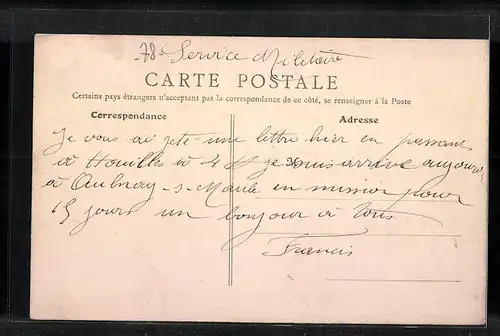 78 - Service Militaire
CARTE POSTALE
Certains pays étrangers n'acceptent pas la correspondance de ce côté, se renseigner à la Poste
Correspondance
Adresse
Je vous ai jeté une lettre hier en passant
à Houilles à 4 H je suis arrivé aujourd
à Aulnay-s-Mauld en mission pour
15 jours un bonjour à tous
Francis